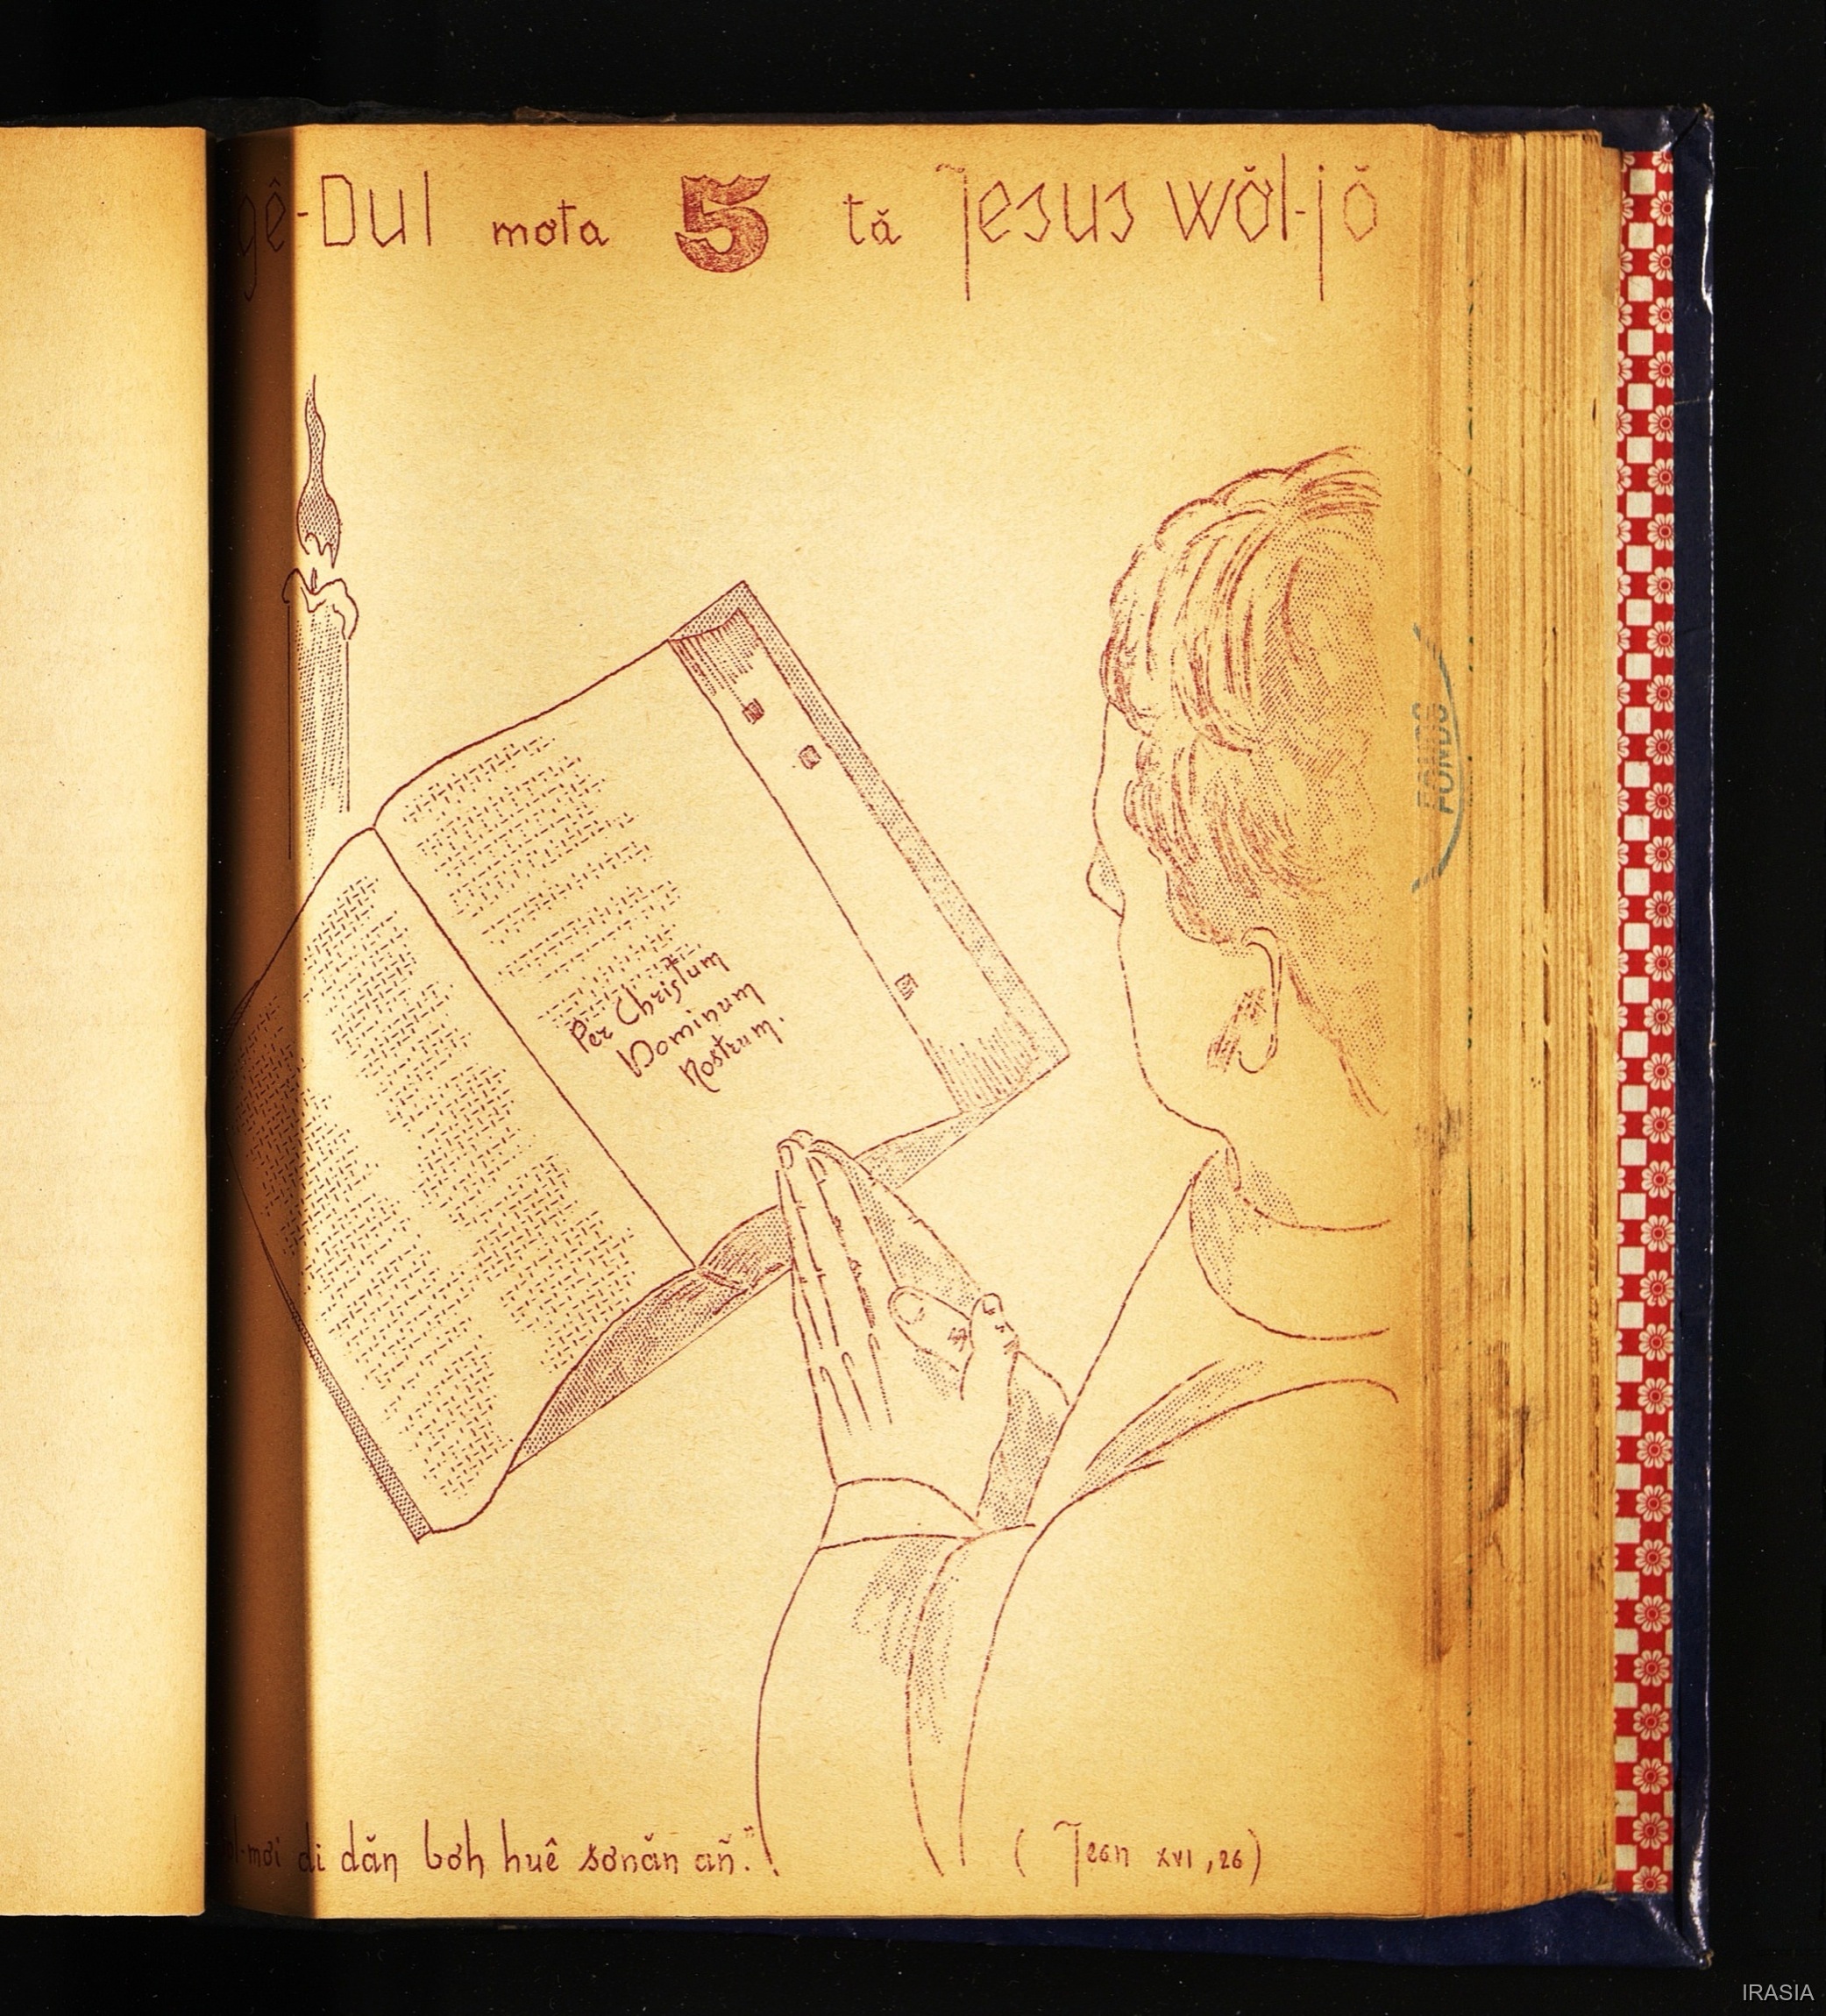 gê-Dul mơta 5 tă Jesus wŏl-jŏ
Per Christum
Dominum
Nostrum.
di dăn bơh huê sơnăn añ."
( Jean XVI, 26)
FONDO
IRASIA